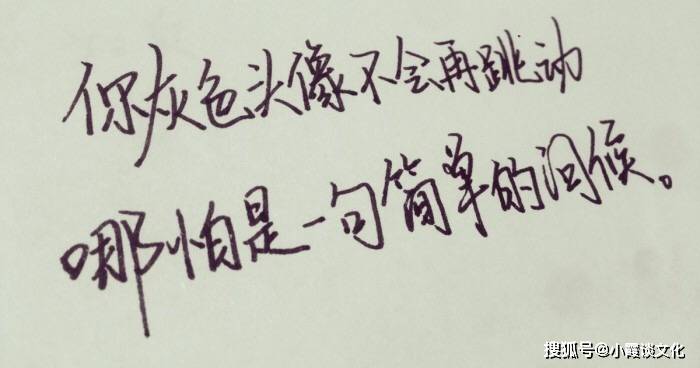 你灰色头像不会再跳动
哪怕是一句简单的问候。
搜狐号@小霞谈文化